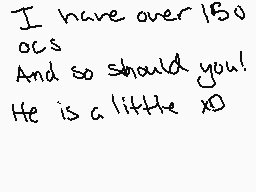 I have over 150
ocs
And so should you!
He is a little xD